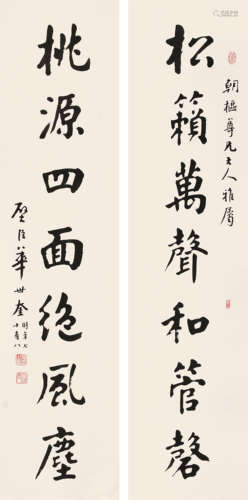 松籟萬聲和管磬
朝樞尊兄大人雅屬
桃源四面絕風塵
璧臣華世奎
時年七十有八